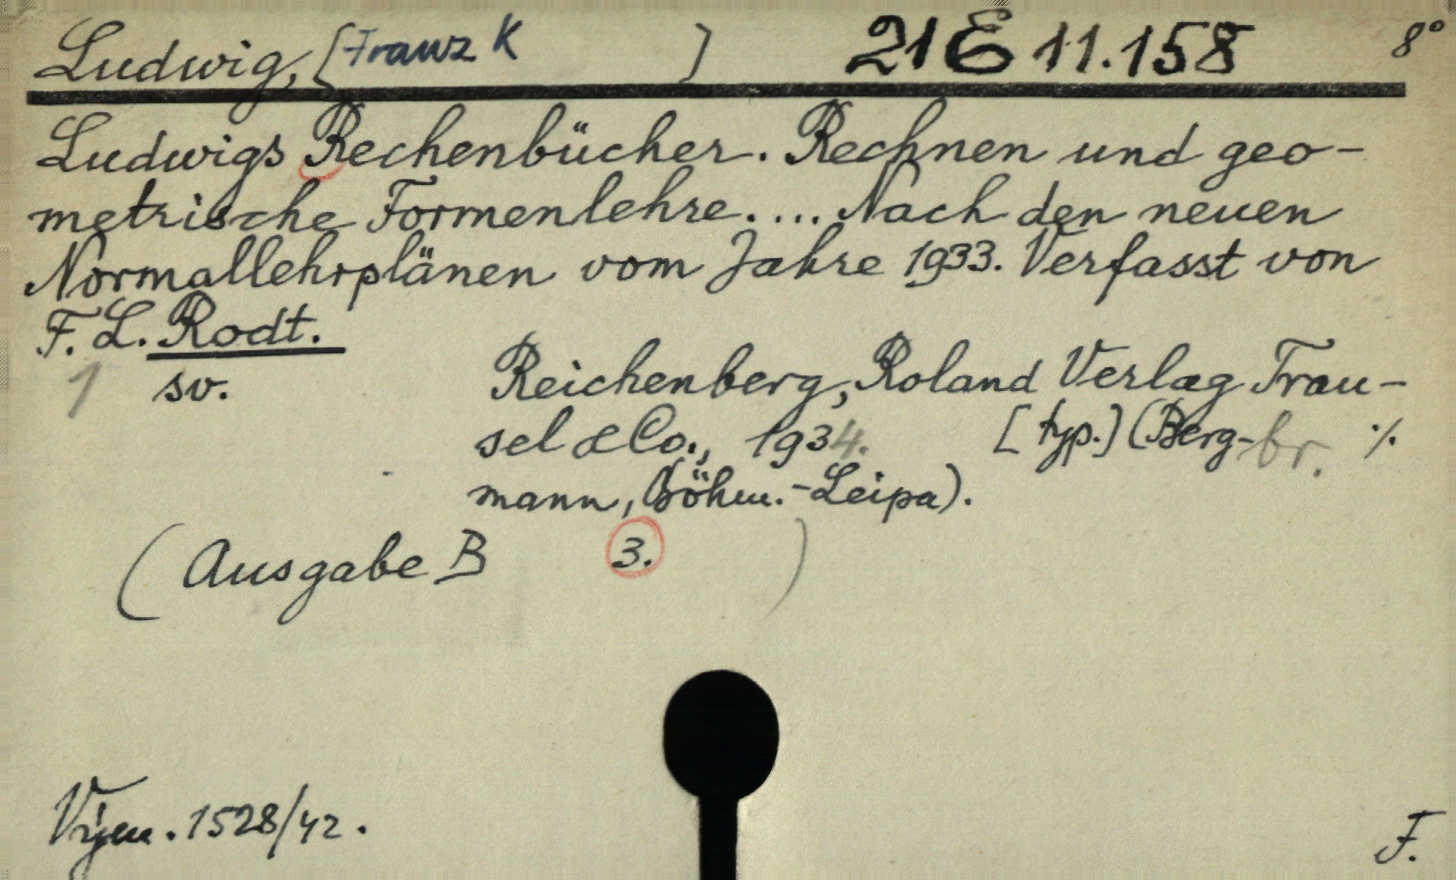 Ludwig, [Franz K ] 21 E 11.158 8°
Ludwigs Rechenbücher. Rechnen und geo-
metrische Formenlehre. ... Nach den neuen
Normallehrplänen vom Jahre 1933. Verfasst von
F. L. Rodt.
1 sv. Reichenberg, Roland Verlag Trau-
sel & Co., 1934. [typ.] (Berg- br. ·/.
mann, Böhm.-Leipa).
(Ausgabe B 3. )
Výjm. 1528/42. F.